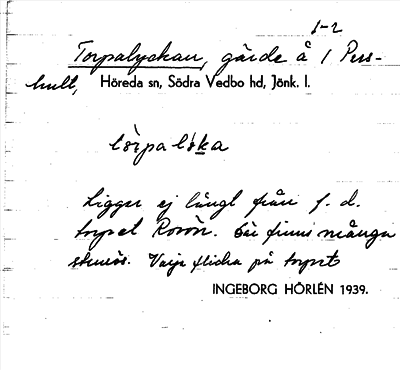 1-2
Torpalyckan, gärde å 1 Pers-
hult, Höreda sn, Södra Vedbo hd, Jönk. l.
Ligger ej långt från f. d.
torpet Rosön. Där finns många
stenrös. Varje flicka på torpet
INGEBORG HÖRLÉN 1939.